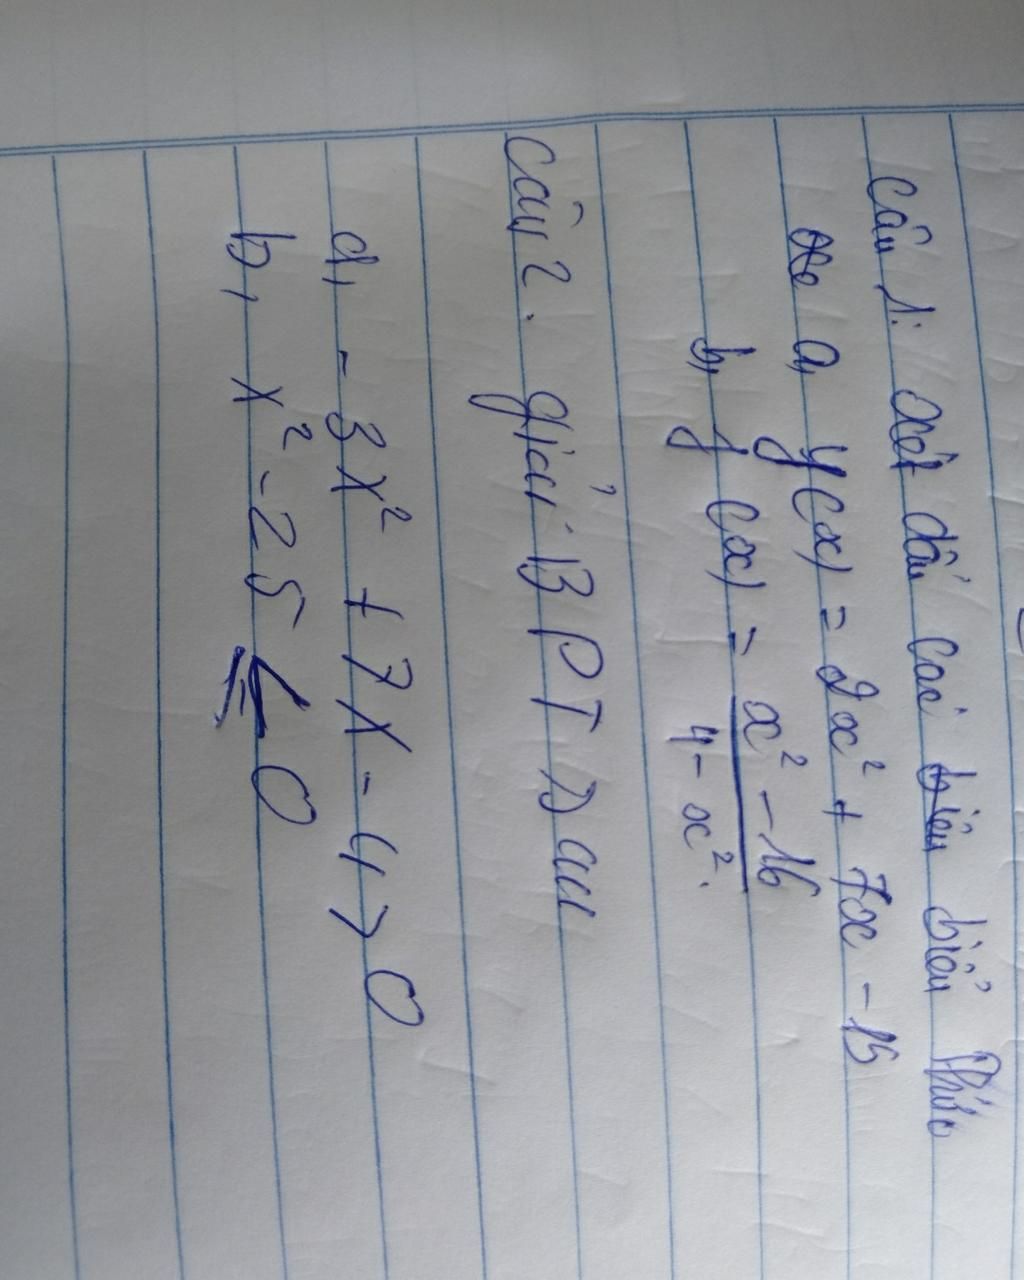 Câu 1: xét dấu các biểu thức
a, y(x) = 2x² + 7x - 15
b, f(x) = x² - 16 / 4 - x².
Câu 2. giải BPT sau
a, - 3x² + 7x - 4 > 0
b, x² - 25 ≤ 0